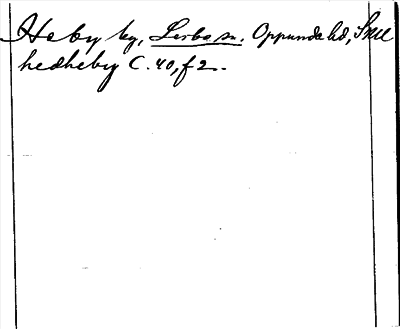 Heby by, Lerbo sn. Oppunda hd, Sml
hedheby C. 40, f 2.